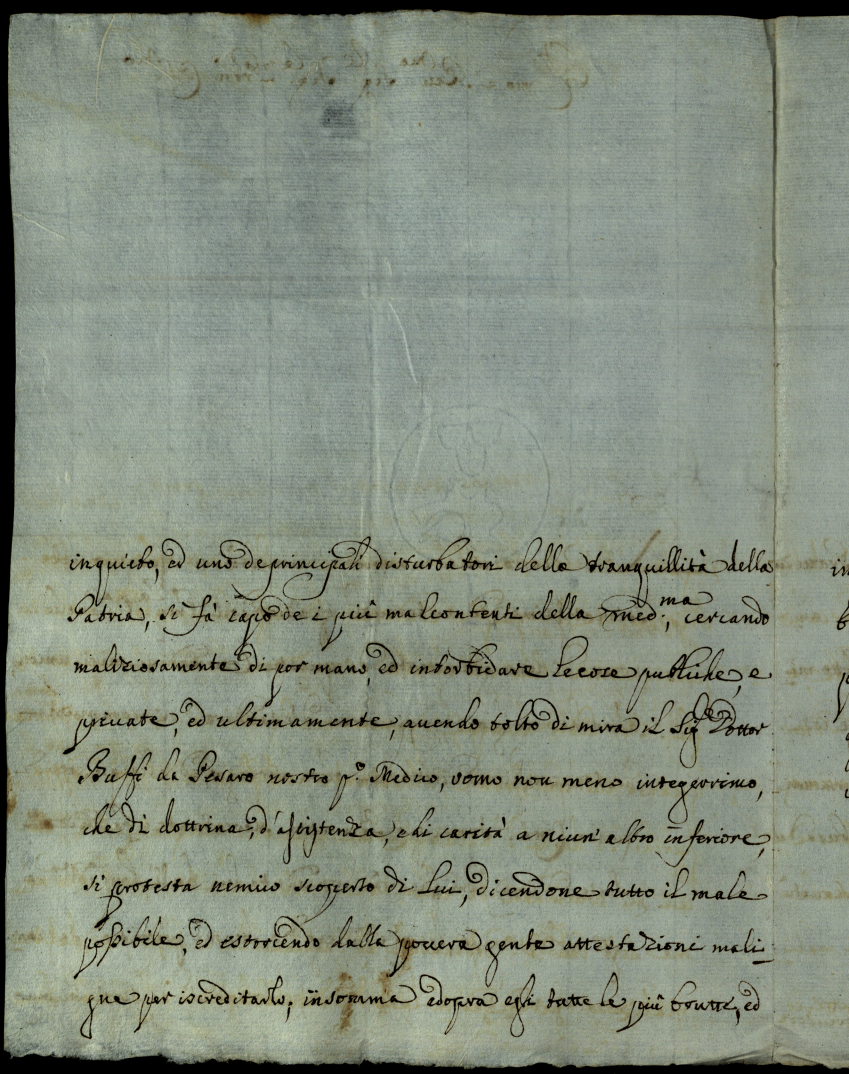 inquieto, ed uno de principali disturbatori della tranquillità della
Patria, si fà capo de i più malcontenti della med:ma, cercando
maliziosamente di por mano, ed intorbidare le cose publiche, e
private, ed ultimamente, avendo tolto di mira il Sig.re Dottor
Buffi da Pesaro nostro p.o Medico, uomo non meno integerrimo,
che di dottrina, d'assistenza, e di carità a niun'altro inferiore,
si protesta nemico scoperto di Lui, dicendone tutto il male
possibile, ed estorcendo dalla povera gente attestazioni mali-
gne per iscreditarlo; insomma adopra egli tutte le più brutte, ed